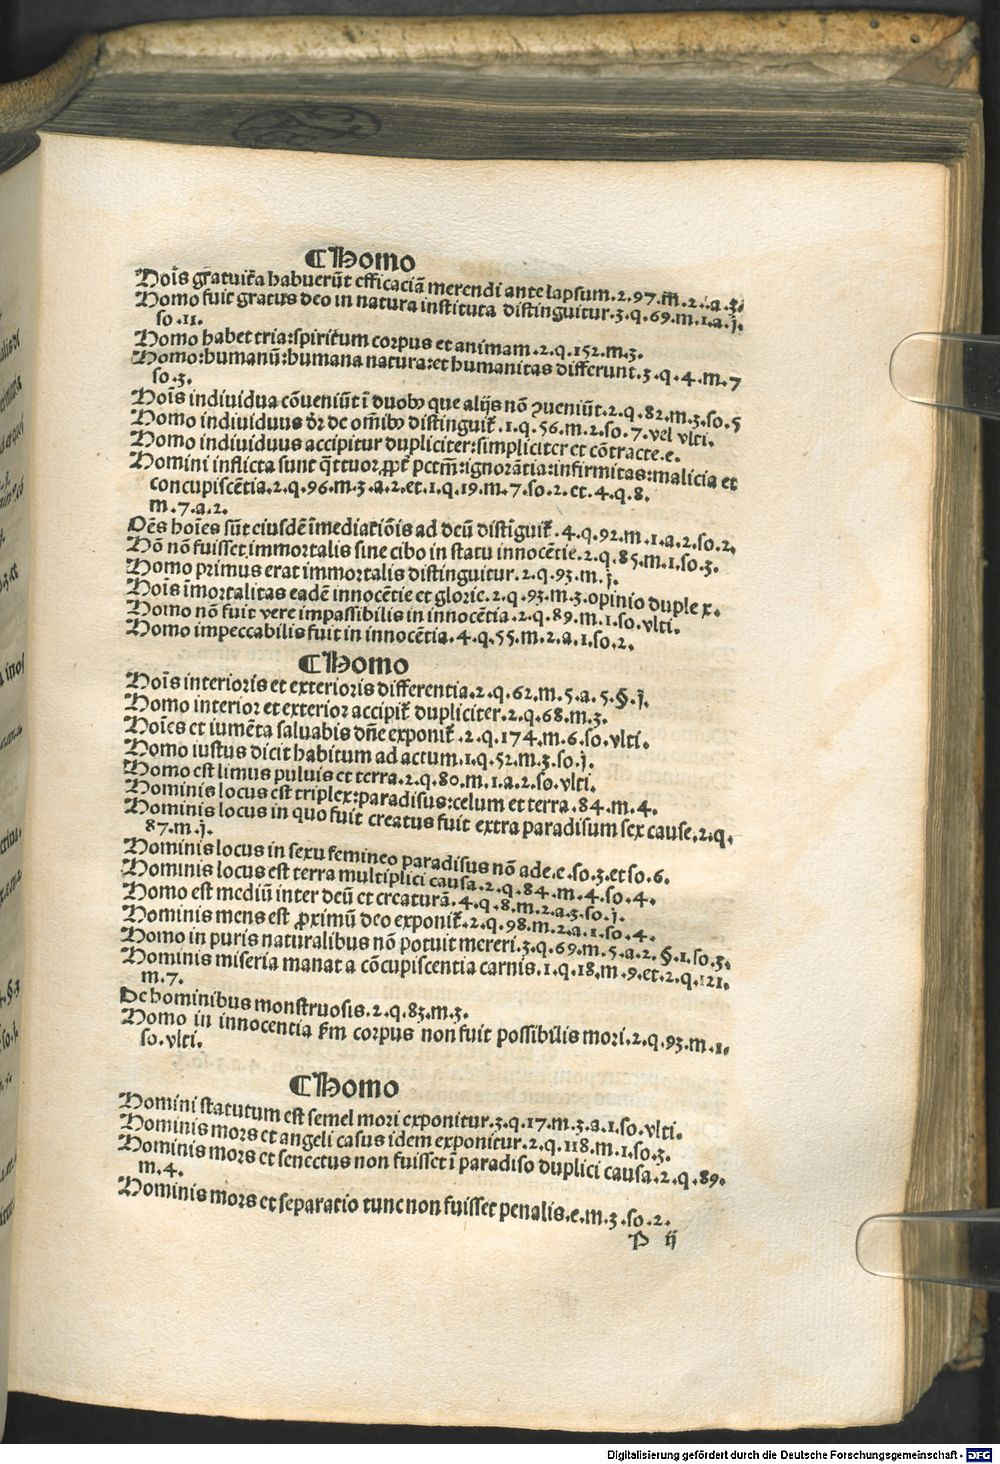 ¶Homo
Hoīs gratuita habuerūt efficaciā merendi ante lapsum.2.97.m.2.a.3.
Homo fuit gratus deo in natura instituta distinguitur.3.q.69.m.1.a.j.
so.11.
Homo habet tria:spiritum corpus et animam.2.q.152.m.3.
Homo:humanū:humana natura:et humanitas differunt.3.q.4.m.7
so.3.
Hoīs indiuidua cōueniūt ī duobꝰ que alijs nō ꝯueniūt.2.q.82.m.3.so.5
Homo indiuiduus dr̄ de oībꝰ distinguit᷑.1.q.56.m.2.so.7.vel vlti.
Homo indiuiduus accipitur dupliciter:simpliciter et cōtracte.e.
Homini inflicta sunt q̄ttuor ꝓpt᷑ pctm̄:ignorātia:infirmitas:malicia et
concupiscētia.2.q.96.m.3.a.2.et.1.q.19.m.7.so.2.et.4.q.8.
m.7.a.2.
Oēs hoīes sūt eiusdē īmediatiōis ad deū distīguit᷑.4.q.92.m.1.a.2.so.2.
Hō nō fuisset immortalis sine cibo in statu innocētie.2.q.85.m.1.so.3.
Homo primus erat immortalis distinguitur.2.q.93.m.j.
Hoīs īmortalitas eadē innocētie et glorie.2.q.93.m.3.opinio duplex.
Homo nō fuit vere impassibilis in innocētia.2.q.89.m.1.so.vlti.
Homo impeccabilis fuit in innocētia.4.q.55.m.2.a.1.so.2.
¶Homo
Hoīs interioris et exterioris differentia.2.q.62.m.5.a.5.§.j.
Homo interior et exterior accipit᷑ dupliciter.2.q.68.m.3.
Hoīes et iumēta saluabis dn̄e exponit᷑.2.q.174.m.6.so.vlti.
Homo iustus dicit habitum ad actum.1.q.52.m.3.so.j.
Homo est limus puluis et terra.2.q.80.m.1.a.2.so.vlti.
Hominis locus est triplex:paradisus:celum et terra.84.m.4.
Hominis locus in quo fuit creatus fuit extra paradisum sex cause.2.q.
87.m.j.
Hominis locus in sexu femineo paradisus nō ade.e.so.3.et so.6.
Hominis locus est terra multiplici causa.2.q.84.m.4.so.4.
Homo est mediū inter deū et creaturā.4.q.8.m.2.a.3.so.j.
Hominis mens est ꝓximū deo exponit᷑.2.q.98.m.2.a.1.so.4.
Homo in puris naturalibus nō potuit mereri.3.q.69.m.5.a.2.§.1.so.3.
Hominis miseria manat a cōcupiscentia carnis.1.q.18.m.9.et.2.q.121.
m.7.
De hominibus monstruosis.2.q.83.m.3.
Homo in innocentia ẜm corpus non fuit possibilis mori.2.q.93.m.1.
so.vlti.
¶Homo
Homini statutum est semel mori exponitur.3.q.17.m.3.a.1.so.vlti.
Hominis mors et angeli casus idem exponitur.2.q.118.m.1.so.3.
Hominis mors et senectus non fuisset ī paradiso duplici causa.2.q.89.
m.4.
Hominis mors et separatio tunc non fuisset penalis.e.m.3.so.2.
P ij
Digitalisierung gefördert durch die Deutsche Forschungsgemeinschaft - DFG